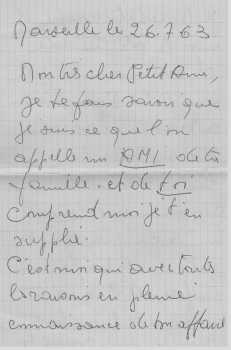 Marseille le 26.7.63
Mon très cher Petit Ami,
Je te fais savoir que
je suis ce que l'on
appelle un AMI de ta
famille. et de toi
Comprend moi je t'en
supplie.
C'est moi qui avec toutes
les raisons en pleine
connaissance de ton affaire